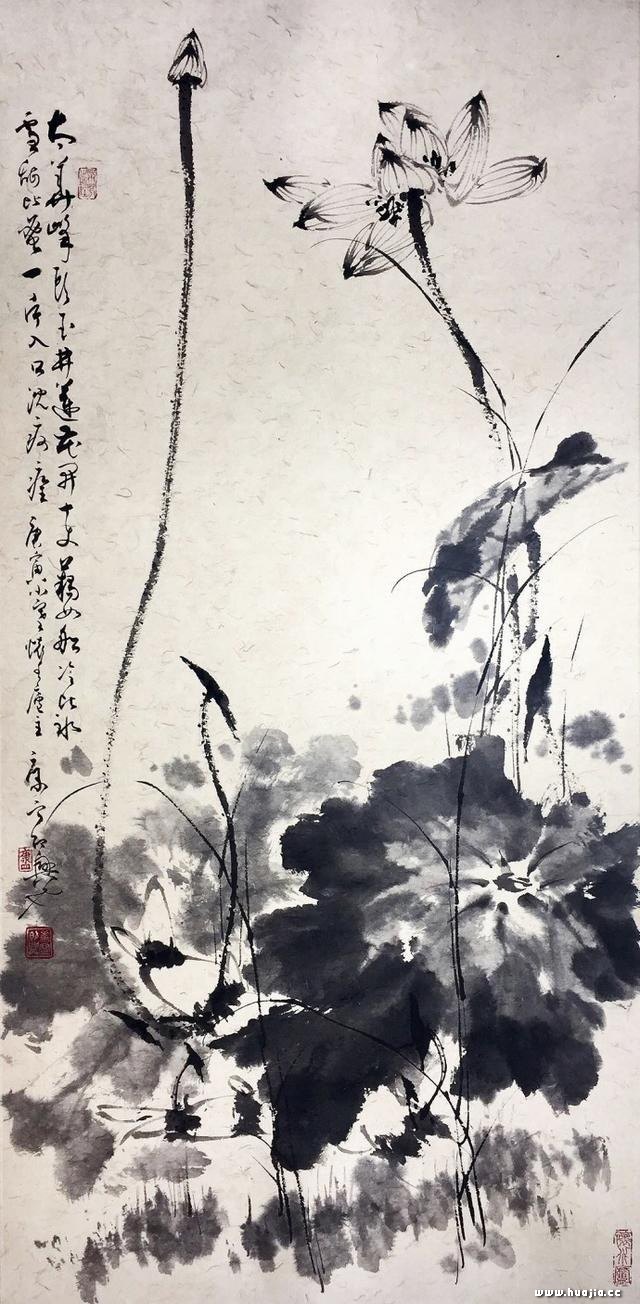 太華峰頭玉井蓮花開十丈藕如船冷比冰
雪甜比蜜一片入口沈疴痊庚寅小廬主康寧
www.huajia.cc